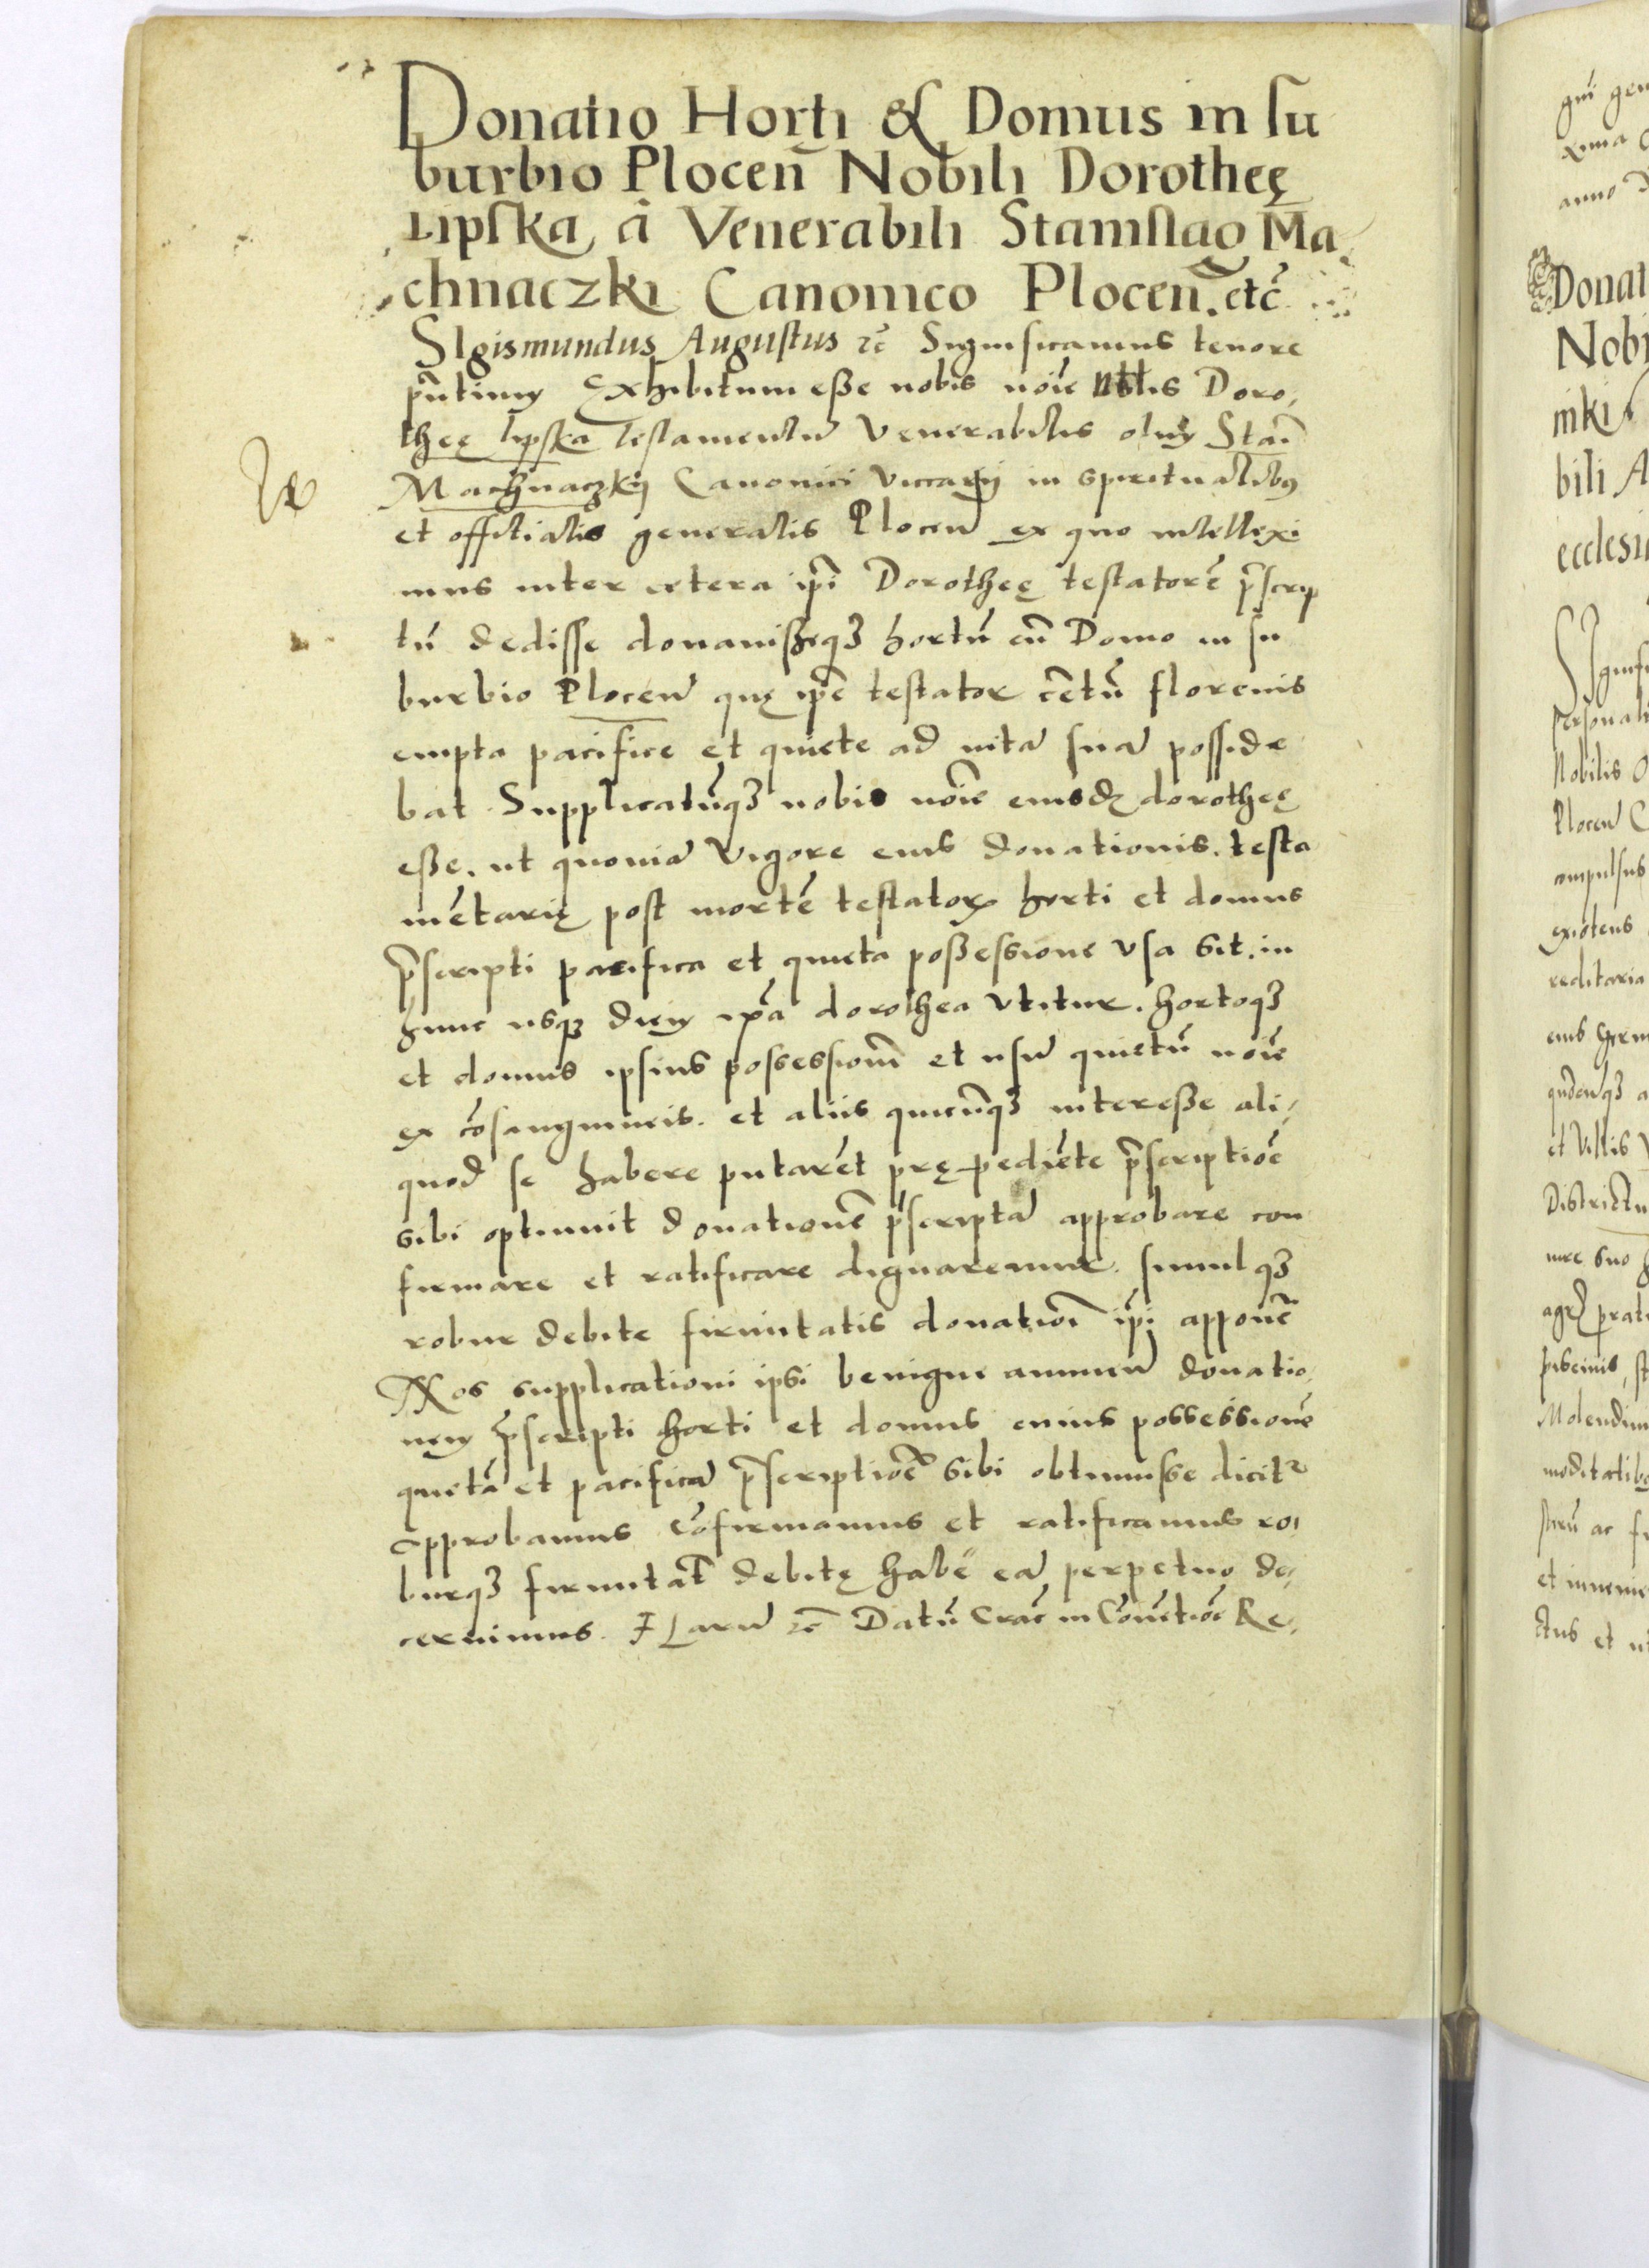 Donatio Horti & Domus in su
burbio Plocen̄ Nobili Dorotheę
Lipska à Venerabili Stanislao Ma
chnaczki Canonico Plocen̄. etc̄
SIgismundus Augustus ⁊c̄ Significamus tenore
p̄ntium Exhibitum esse nobis noīe Nblis Doro,
theę Lipska Testamentū Venerabilis olim Stan̄
Machnaczkij Canonici Viccarij in spiritualibus
et offitialis generalis Plocen̄ ex quo intellexi
mus inter cetera ip̄i Dorotheę testatorē p̄scrip
tū dedisse donavisseqꝫ hortū cū Domo in su
burbio Plocen̄ quę ip̄e testator cētū florenis
empta pacifice et quiete ad vitā suā posside
bat. Supplicatūqꝫ nobis noīe eiusdē dorotheę
esse. ut quoniā Vigore eius donationis. testa
mētarię post mortē testatoris horti et domus
p̄scripti pacifica et quieta possessione Vsa sit. in
hunc usqꝫ diem ip̄a dorothea Vtitur. hortoqꝫ
et domus ipsius possessionē et usū quietū noīe
ex cōsanguineis. et aliis quicūqꝫ interesse ali,
quod se habere putarēt prępediēte p̄scriptiōe
sibi optinuit donationē p̄scriptā approbare con
firmare et ratificare dignaremur. simulqꝫ
robur debite firmitatis donationi ip̄i apponē
Nos supplicationi ipsi benigne annuen̄ donatio,
nem p̄scripti horti et domus cuius possessionē
quietā et pacificā p̄scriptiōe sibi obtinuisse dicitʳ
approbamus cōfirmamus et ratificamus ro,
burqꝫ firmitatis debitę habē eā perpetuo de,
cernimus. H Harū ⁊c̄ Datū Crac̄ in Cōvētiōe Re,
Donat
Nobi
niki
bili A
ecclesi
personali
Nobilis
Plocen̄ C
compulsus
existens
reditaria
et Villis
Districtu
iure suo
agr̄ prati
piscinis, st
Molendin